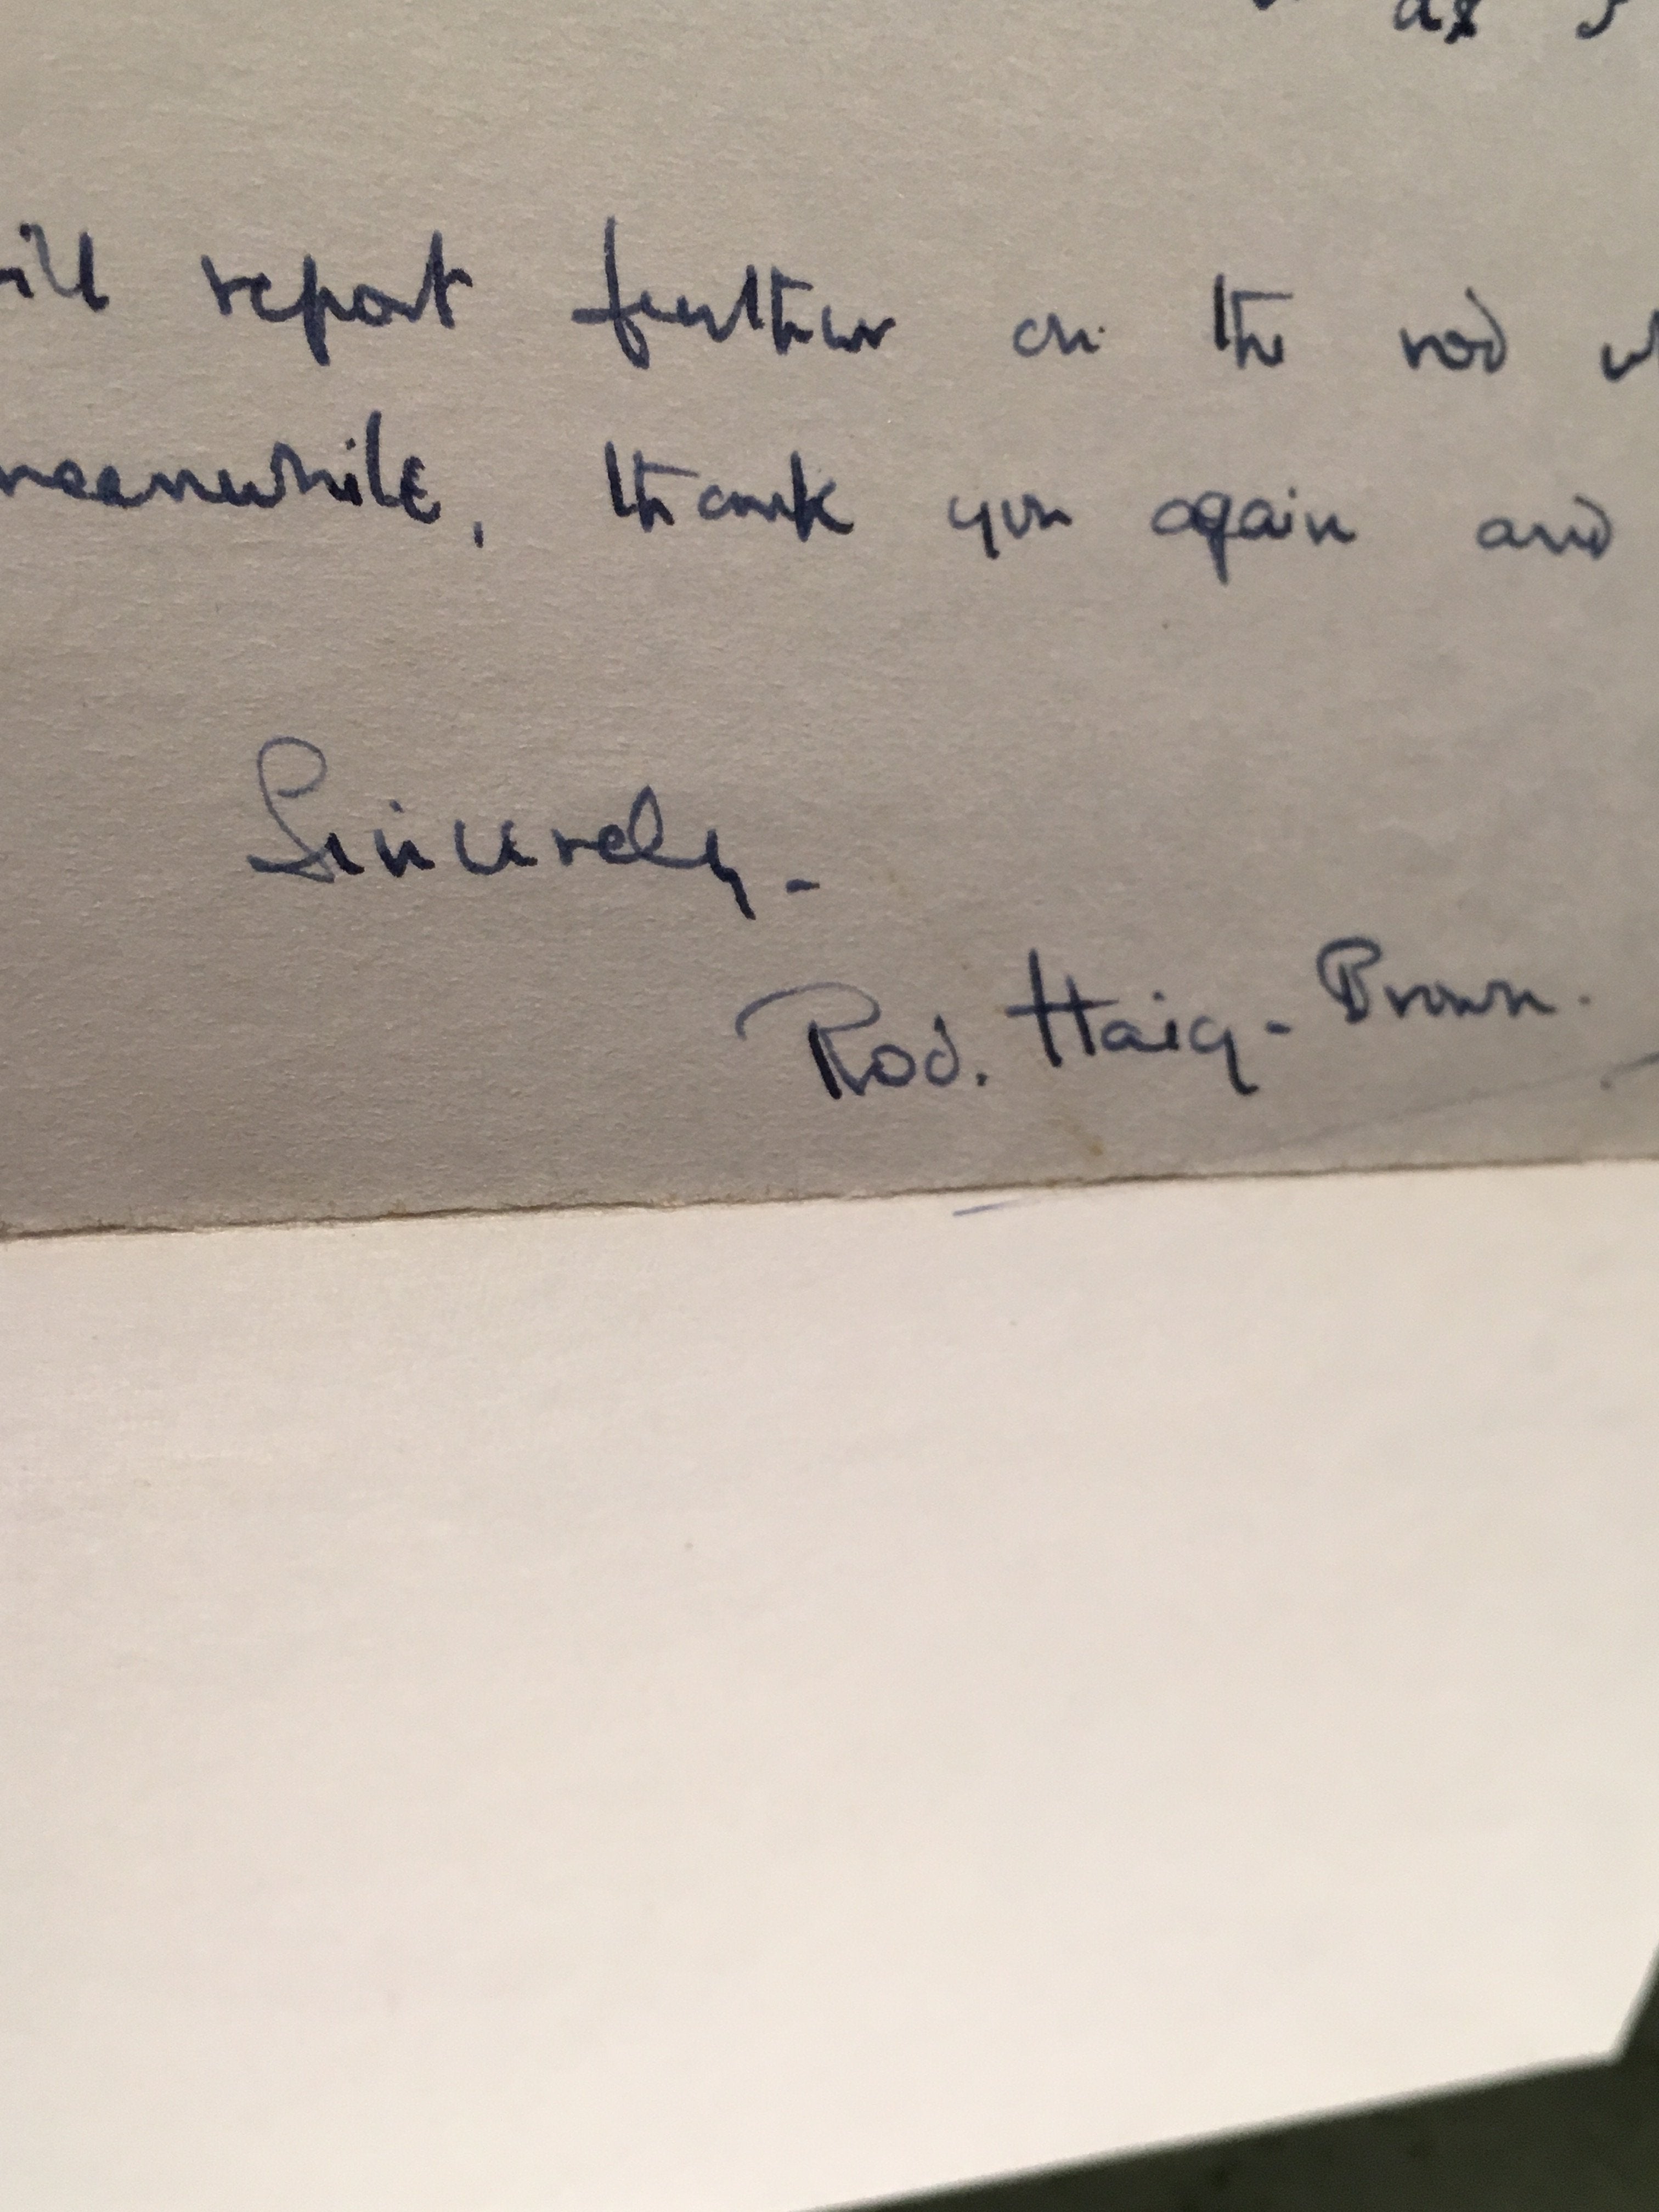 report further on the rod
meanwhile, thank you again and
Sincerely -
Rod. Haig-Brown.